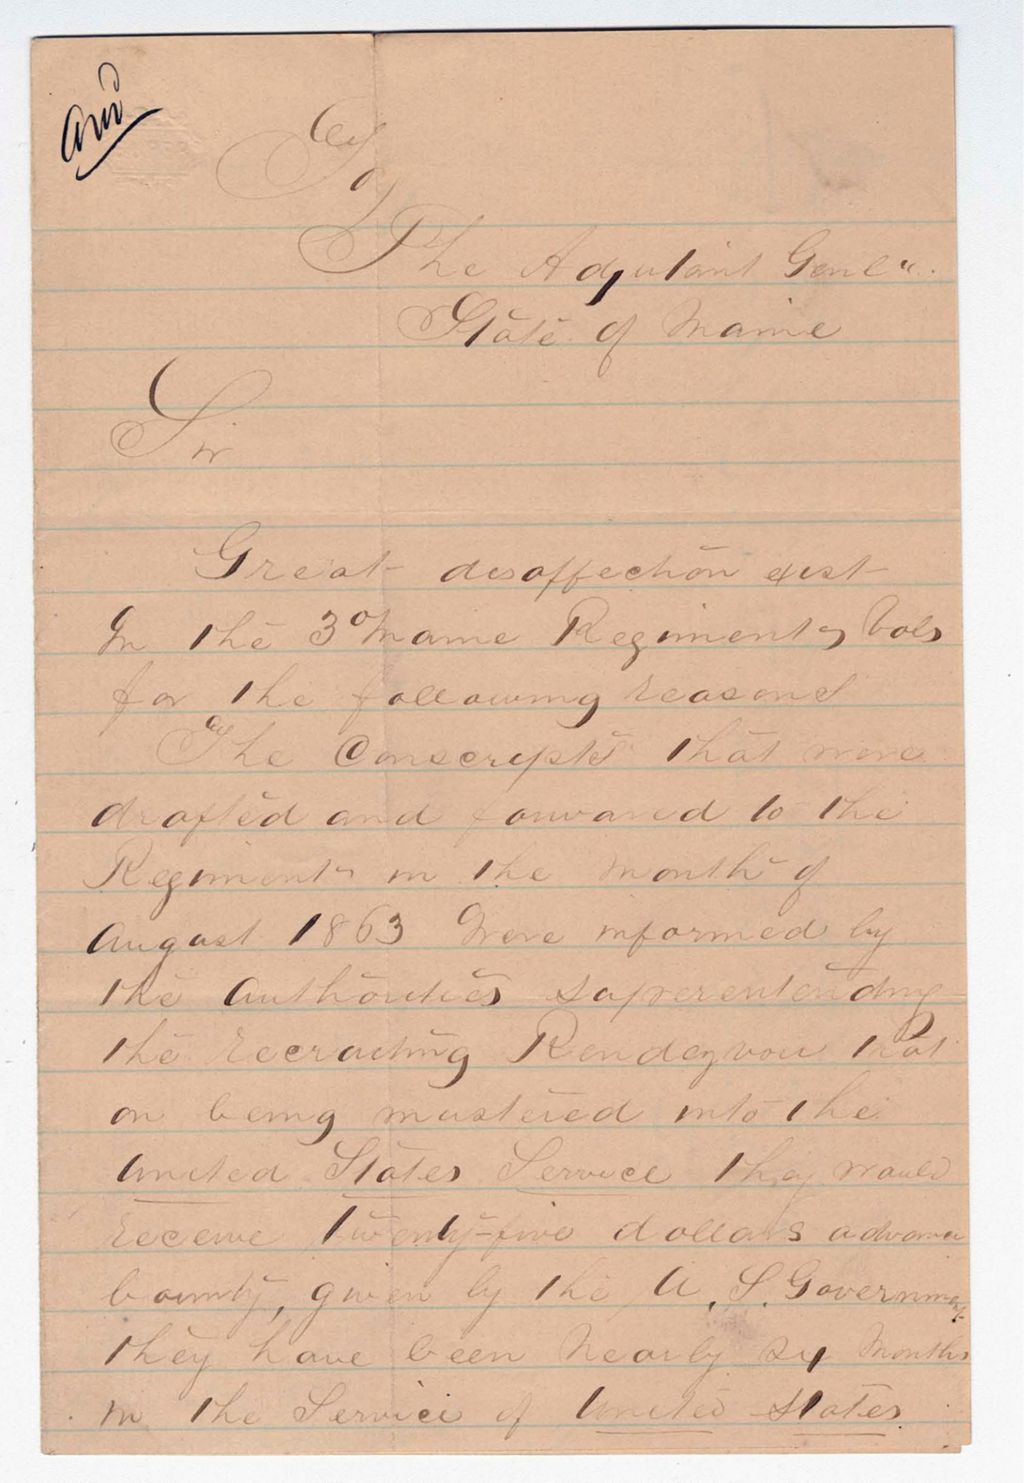 To
The Adjutant Genl".
State of Maine
Sir
Great disaffection exist
In the 3º Maine Regiment, Vols
for the following reasons
The Conscripts that were
drafted and forwared to the
Regiment in the month of
August 1863 Were informed by
the Authorities superentending
the recruiting Rendezvou that
on being mustered into the
United States Service they would
receive Twenty-five dollars advance
bounty, given by the U. S. Government
they have been nearly six months
in the Service of United States